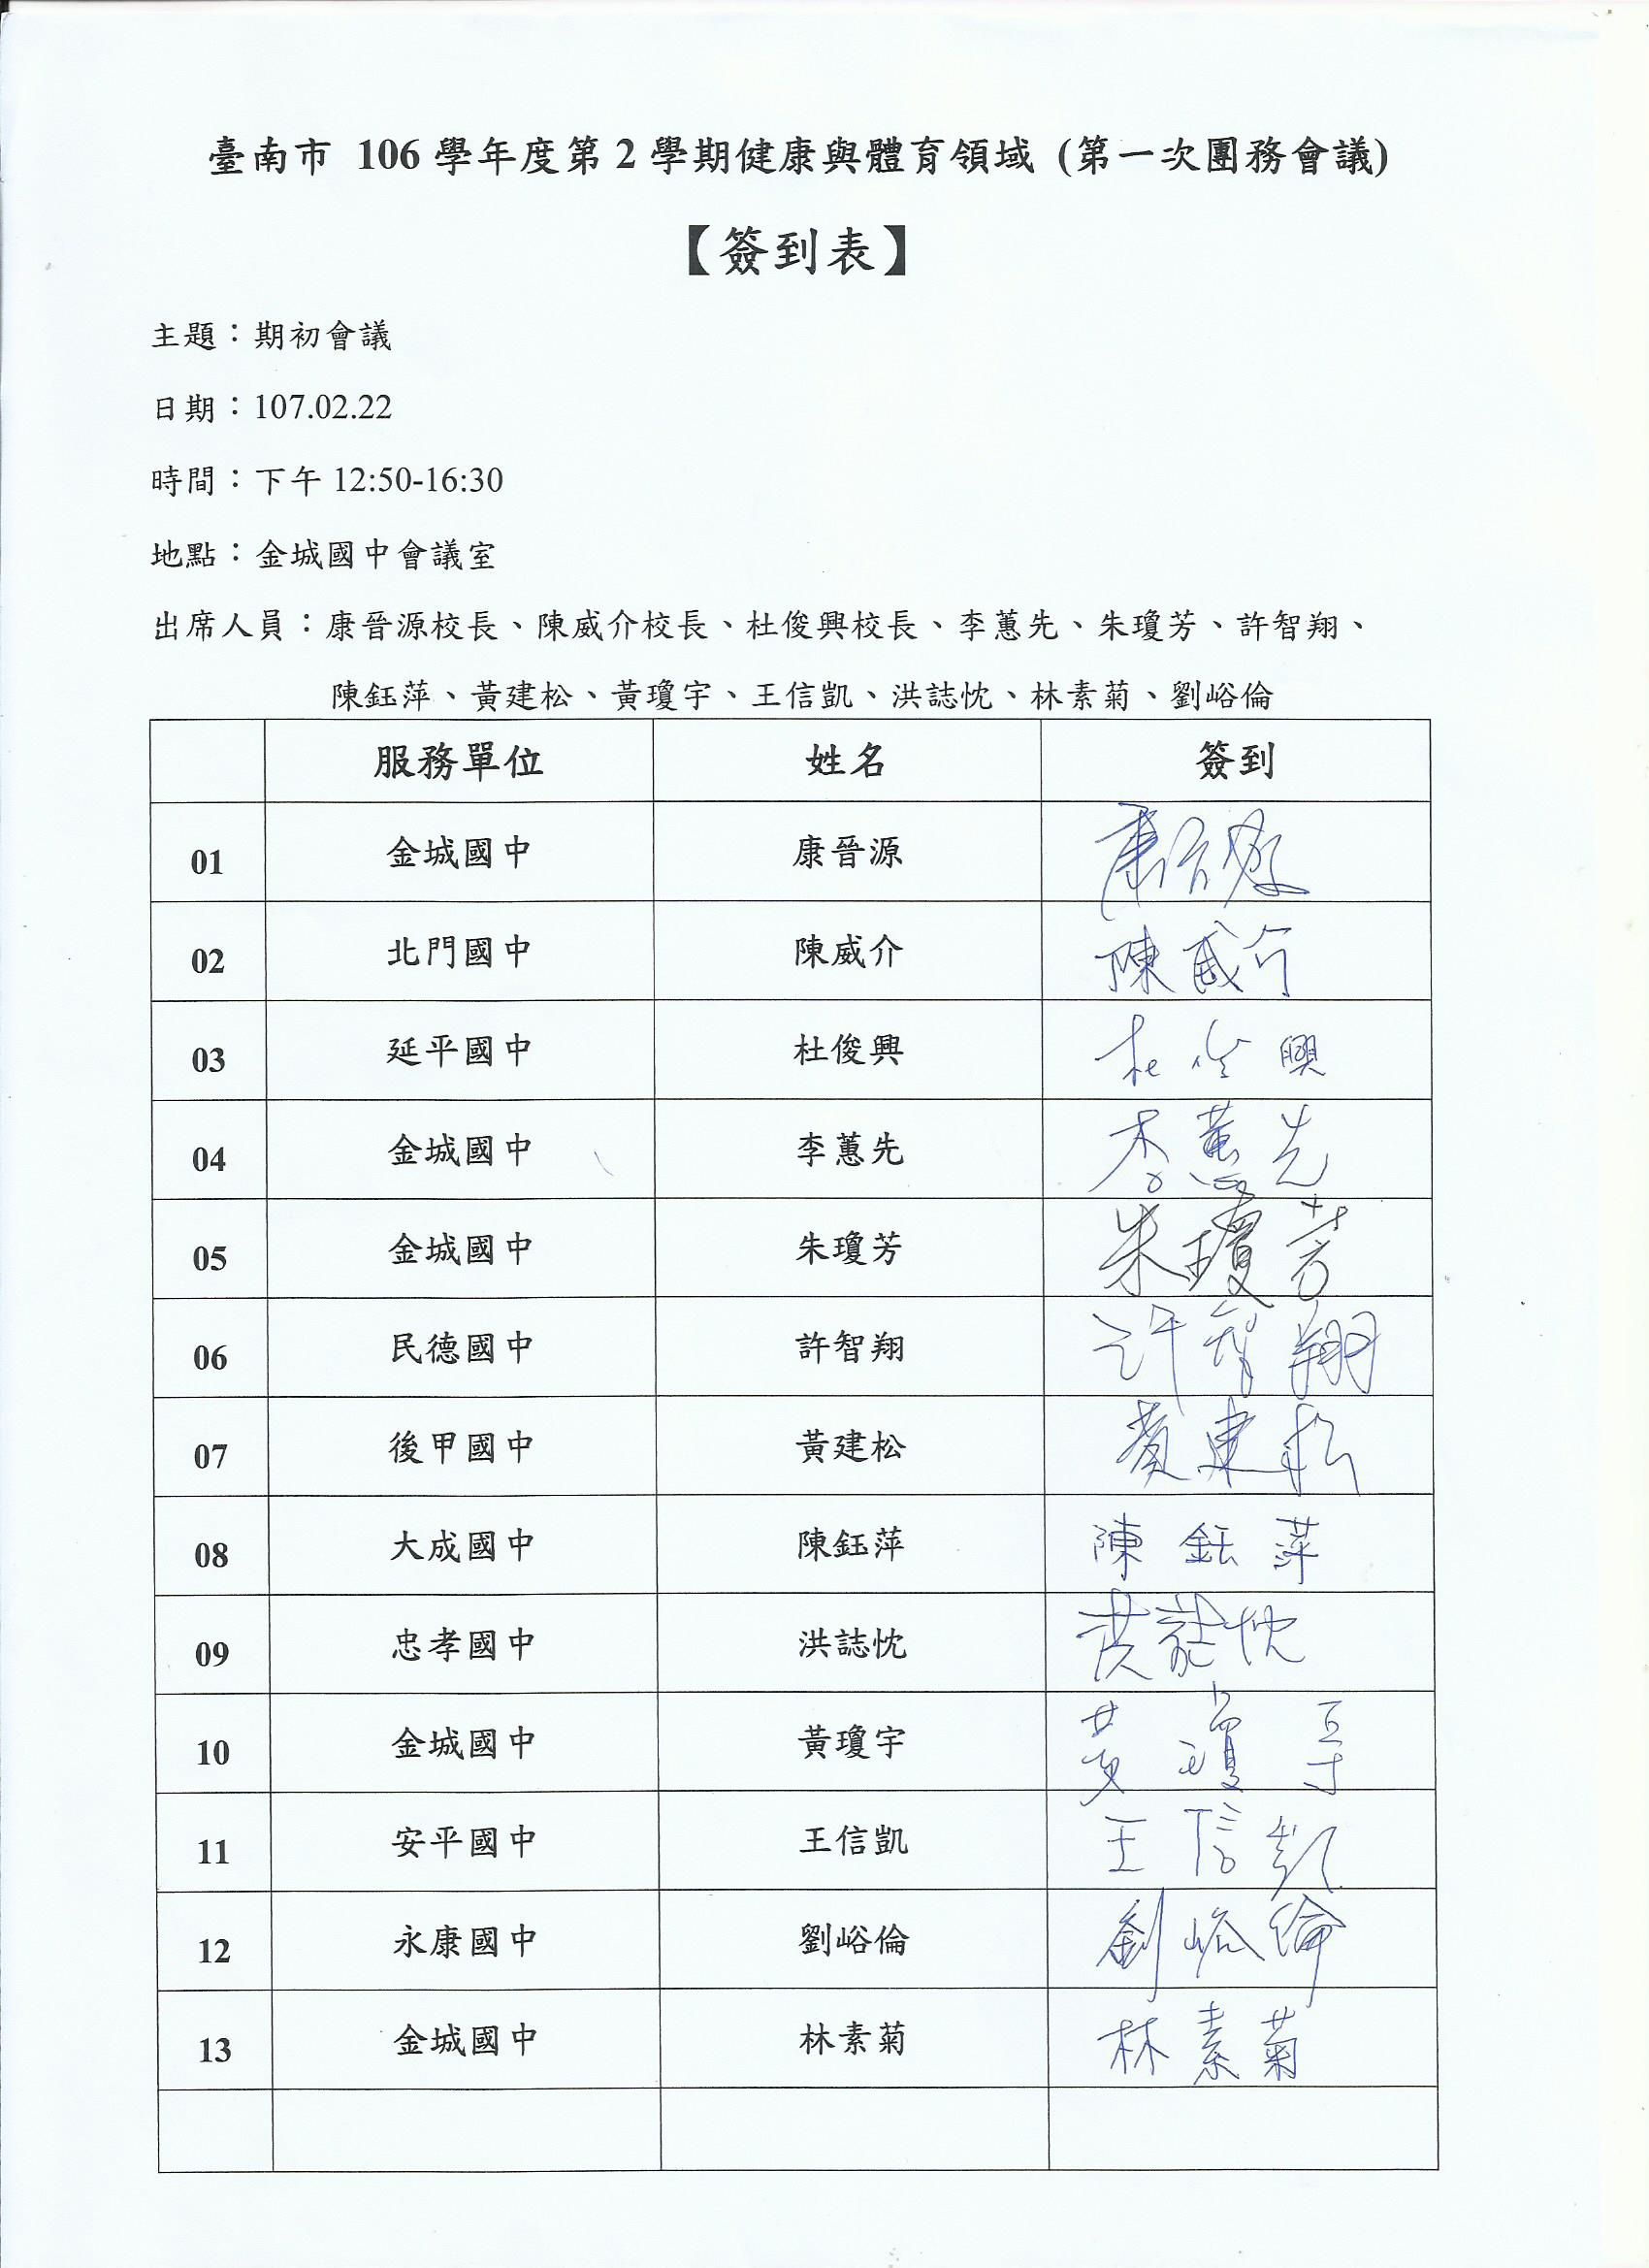 臺南市 106 學年度第 2 學期健康與體育領域 (第一次團務會議)
【簽到表】
主題：期初會議
日期：107.02.22
時間：下午 12:50-16:30
地點：金城國中會議室
出席人員：康晉源校長、陳威介校長、杜俊興校長、李蕙先、朱瓊芳、許智翔、
陳鈺萍、黃建松、黃瓊宇、王信凱、洪誌忱、林素菊、劉峪倫
服務單位 姓名 簽到
01 金城國中 康晉源 康晉源
02 北門國中 陳威介 陳威介
03 延平國中 杜俊興 杜俊興
04 金城國中 李蕙先 李蕙先
05 金城國中 朱瓊芳 朱瓊芳
06 民德國中 許智翔 許智翔
07 後甲國中 黃建松 黃建松
08 大成國中 陳鈺萍 陳鈺萍
09 忠孝國中 洪誌忱 洪誌忱
10 金城國中 黃瓊宇 黃瓊宇
11 安平國中 王信凱 王信凱
12 永康國中 劉峪倫 劉峪倫
13 金城國中 林素菊 林素菊